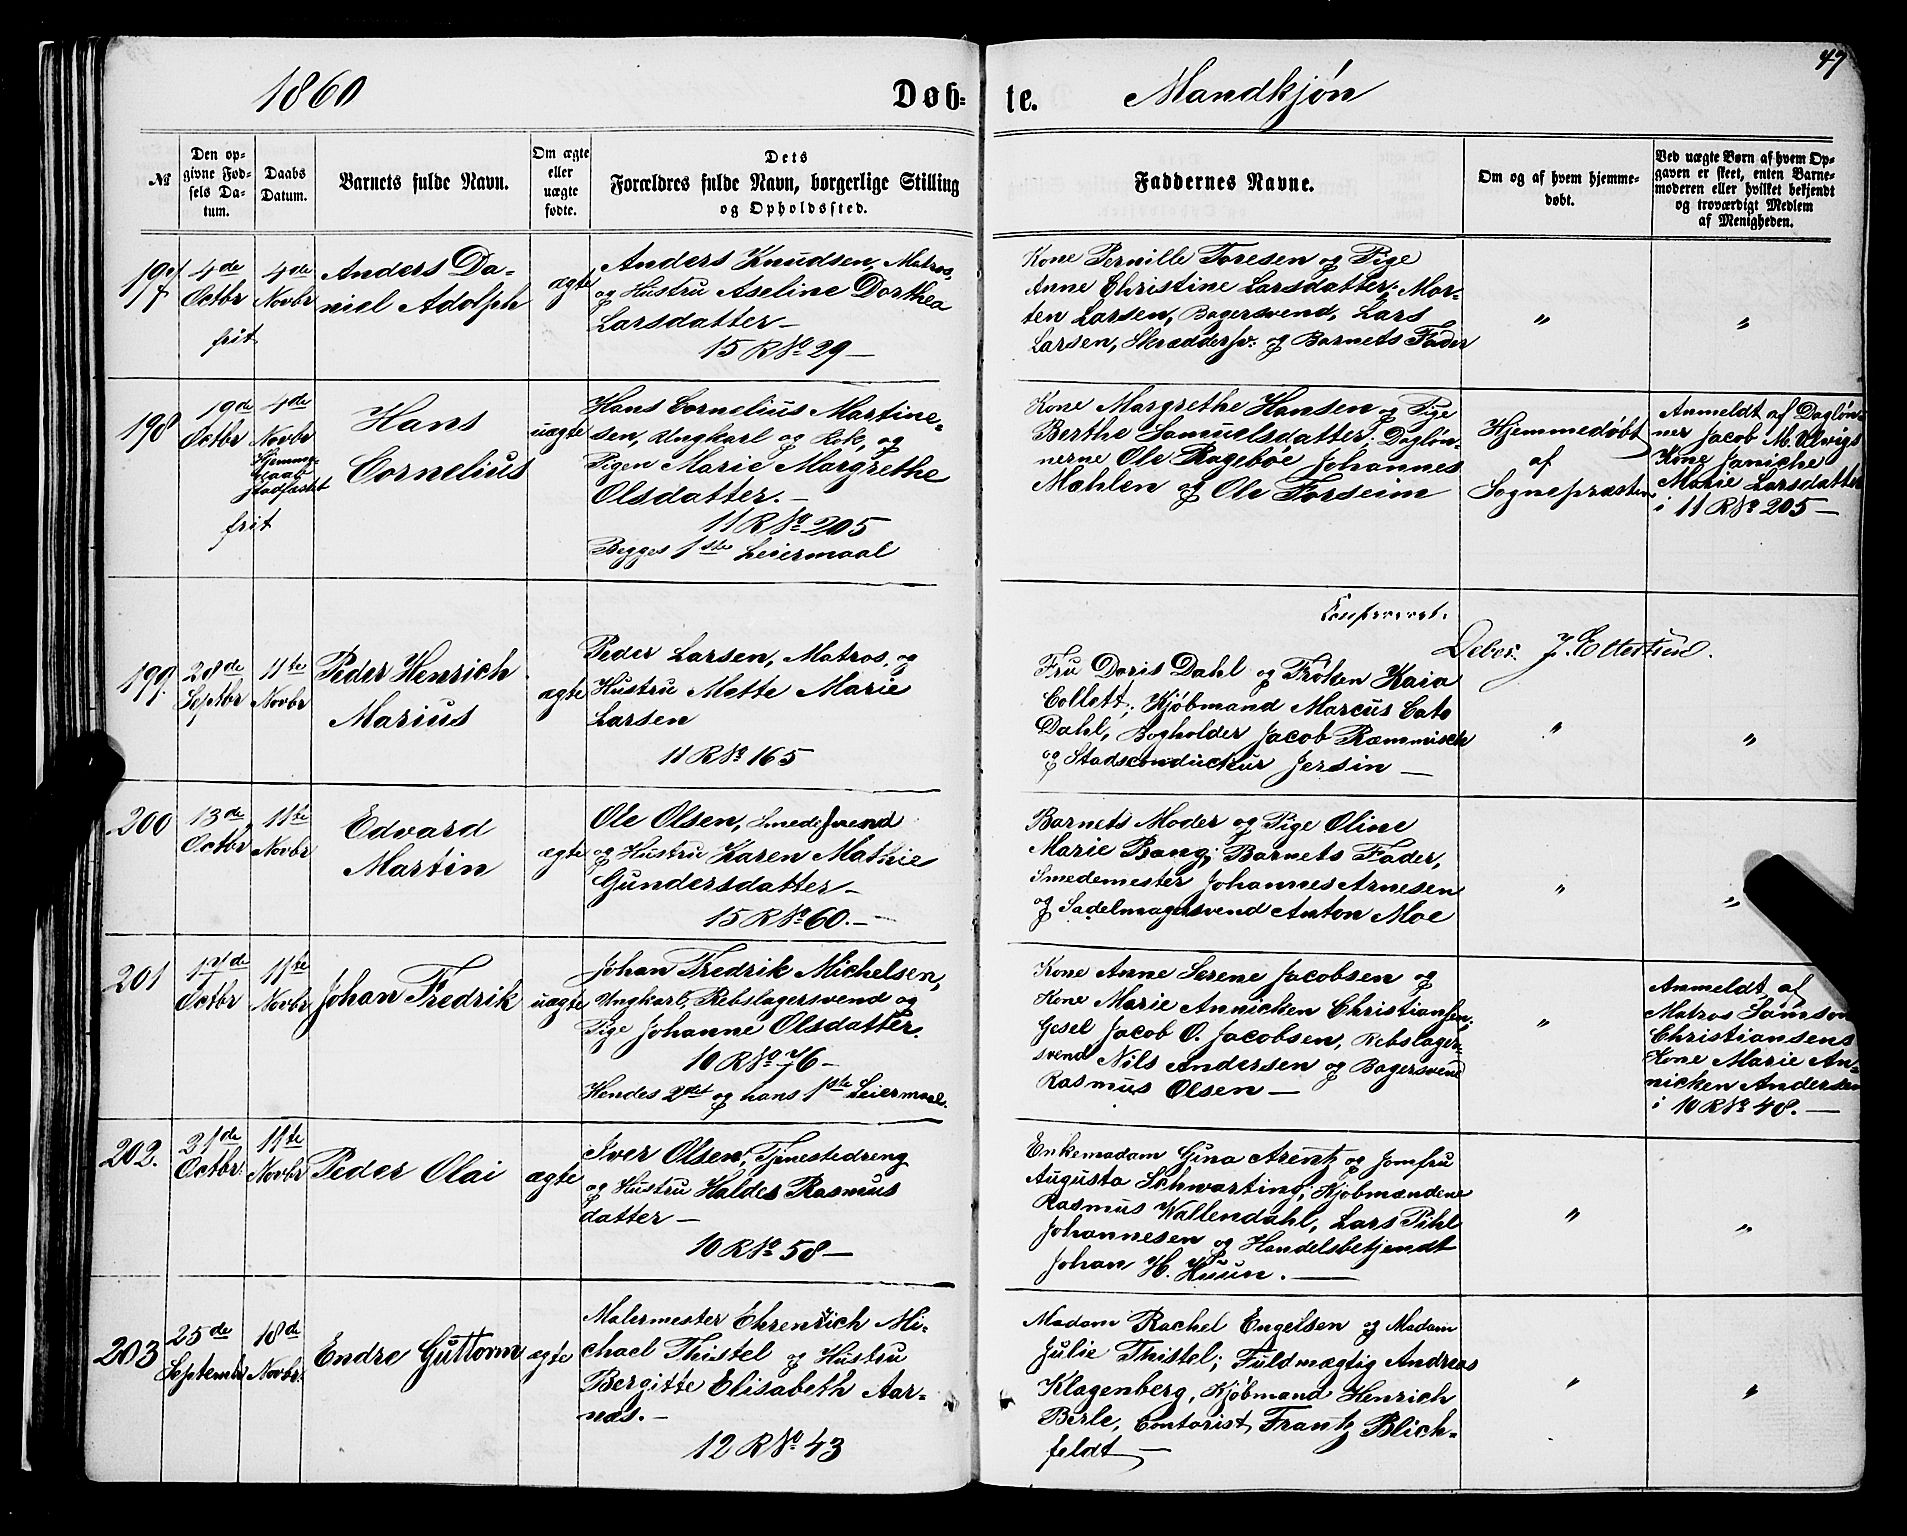 47
1860
Døb-
te.
Mandkjøn
№
Den op-
givne Fød-
sels Da-
tum.
Daabs
Datum.
Barnets fulde Navn.
Om ægte
eller
uægte
fødte.
Dets
Forældres fulde Navn, borgerlige Stilling
og Opholdssted.
Faddernes Navne.
Om og af hvem hjemme-
døbt.
Ved uægte Børn af hvem Op-
gaven er skeet, enten Barne-
moderen eller hvilket bekjendt
og troværdigt Medlem
af Menigheden.
197
4de
Octbr
frit
4de
Novbr
Anders Da-
niel Adolph
ægte
Anders Knudsen, Matros,
og Hustru Aseline Dorthea
Larsdatter —
15 R No 29 —
Kone Pernille Toresen og Pige
Anne Christine Larsdatter; Mor-
ten Larsen, Bagersvend, Lars
Larsen, Skræddersv. og Barnets Fader
"
"
198
19de
Octbr
4de
Novbr
Hjemme-
daab
stadfæstet
frit
Hans
Cornelius
uægte
Hans Cornelius Martine-
sen, Ungkarl og Kok, og
Pigen Marie Margrethe
Olsdatter. —
11 R No 205
Begges 1ste Leiermaal
Kone Margrethe Hansen og Pige
Berthe Samuelsdatter; Dagløn-
nerne Ole Ragebøe Johannes
Mæhlen og Ole Forseim
Hjemmedøbt
af
Sognepræsten
Anmeldt af Dagløn-
ner Jacob M. Ulvigs
Kone Janiche
Marie Larsdatter
i 11 R No 205 —
Confereret.
Debes. J. Ellertsen.
199.
28de
Septbr
11te
Novbr
Peder Henrich
Marius
ægte
Peder Larsen, Matros, og
Hustru Mette Marie
Larsen
11 R No 165
Fru Doris Dahl og Frøken Kaia
Collett; Kjøbmand Marcus Cato
Dahl, Bogholder Jacob Ræmmisch
og Stadsconducteur Jersin —
"
"
200
13de
Octbr
11te
Novbr
Edvard
Martin
ægte
Ole Olsen, Smedesvend
og Hustru Karen Mathie
Gundersdatter —
15 R No 60. —
Barnets Moder og Pige Oline
Marie Bang; Barnets Fader,
Smedemester Johannes Arnesen
og Sadelmagersvend Anton Moe
"
"
201
17de
Octbr
11te
Novbr
Johan Fredrik
uægte
Johan Fredrik Michelsen,
Ungkarl, Rebslagersvend og
Pige Johanne Olsdatter.
10 R No 76 —
Hendes 2det og hans 1ste Leiermaal.
Kone Anne Serene Jacobsen og
Kone Marie Annicken Christiansen;
Gesel Jacob O. Jacobsen, Rebslager-
svend Nils Andersen og Bagersvend
Rasmus Olsen —
"
Anmeldt af
Matros Samson
Christiansens
Kone Marie An-
nicken Andersen
i 10 R No 48. —
202.
21de
Octbr.
11te
Novbr
Peder Olai
ægte
Iver Olsen, Tjenestedreng
og Hustru Haldes Rasmus
datter —
10 R No 58 —
Enkemadam Gina Arentz og Jomfru
Augusta Schwarting; Kjøbmændene
Rasmus Wallendahl, Lars Pihl
Johannesen og Handelsbetjendt
Johan H. Kuun. —
"
"
203
25de
Septembr
18de
Novbr.
Endre Guttorm
ægte
Malermester Ehrenrich Mi-
chael Thistel og Hustru
Bergitte Elisabeth Aar-
næs. —
12 R No 43
Madam Rachel Engelsen og Madam
Julie Thistel; Fuldmægtig Andreas
Klagenberg, Kjøbmand Henrich
Berle, Contorist Frantz Blich-
feldt —
"
"